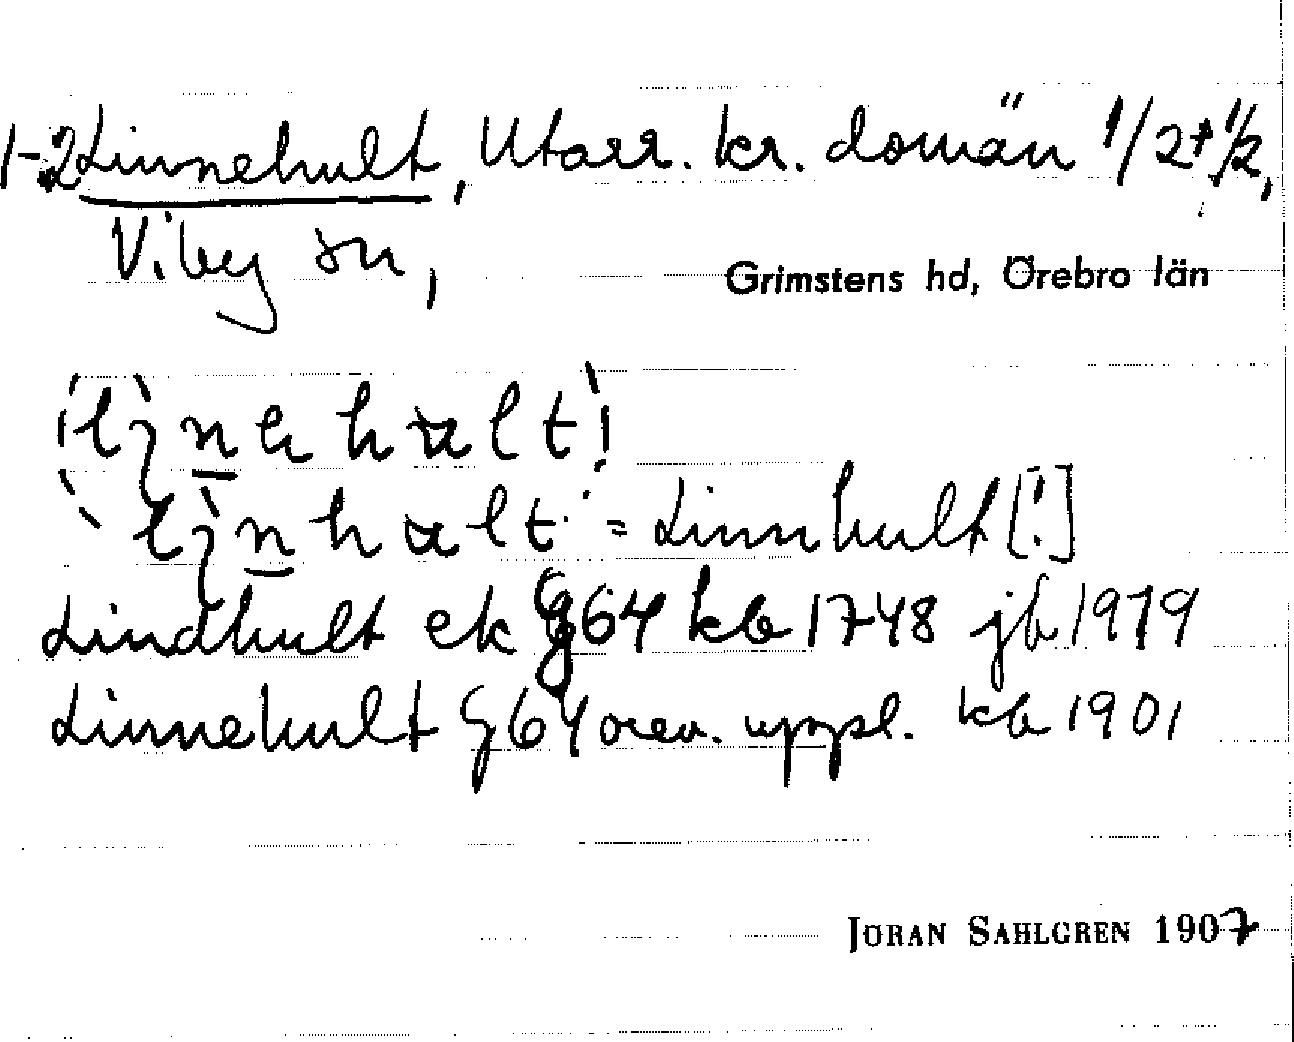 1-2 Linnehult, Utarr. kr. domän 1/2+1/2,
Viby sn,
Grimstens hd, Örebro län
= Linnhult [!]
Lindhult ek G64 kb 1748 jb 1979
Linnehult G64 orev. uppl. kb 1901
JORAN SAHLGREN 1907